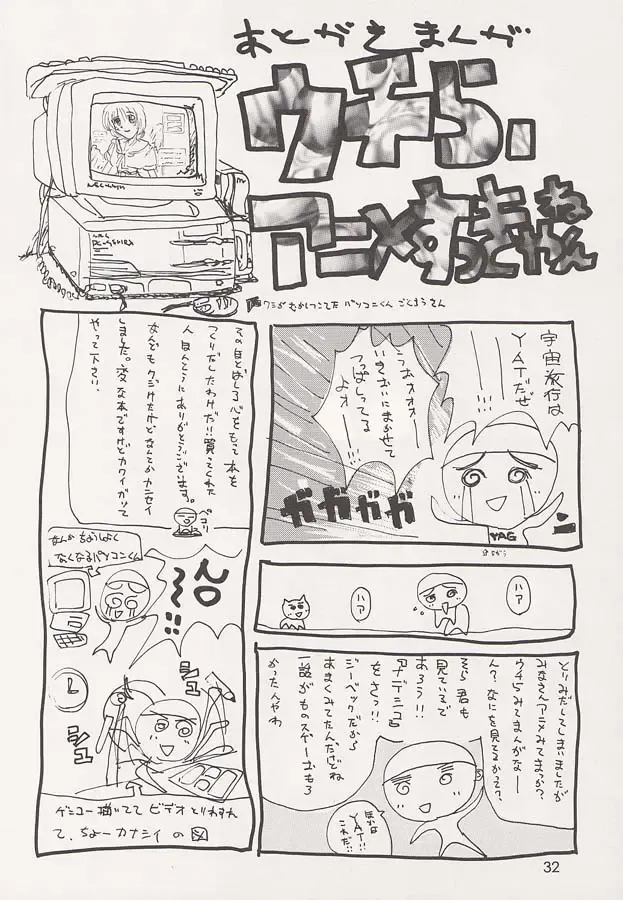 あとがきまんが
ウチら、
アニメすっきゃねん
PC-9821
ワシが むかしつこてた パソコンくん ごくろうさん
宇宙旅行は
YATだぜ
うおぉォォォー
いきおいにまかせて
つっぱしってる
よォー
ガガガガガ
YAG
ハア
ハア
とりみだしてしまいましたが
みなさんアニメみてまっか?
ウチらみてまんがなー
ん?なにを見てるかって?
そら君も
見ているで
あろう!!
ナデシコ
をさっ!!
ジーベックだから
あまくみてたんだけどね
一話がものスゲーおもろ
かったんやわ
ほかは
YAT!!
これだ!!
そのほとばしる心をもって本を
つくりだしたわけだ!!買ってくれた
人ほんとうにありがとうございます。
なんどもクジけたけどなんとかカンセイ
しました。変な本ですけどカワイガッて
やって下さい.
ペコリ
なんか ちょうしよく
なくなるパソコンくん
シュ
シュ
ゲンコー描いてて ビデオ とりわすれ
て、ちょーカナシイ の図
32